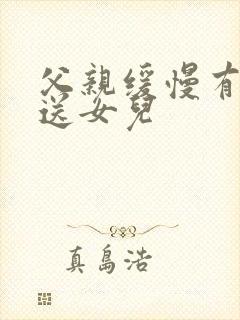 父親缓慢有
送女兒
真島浩